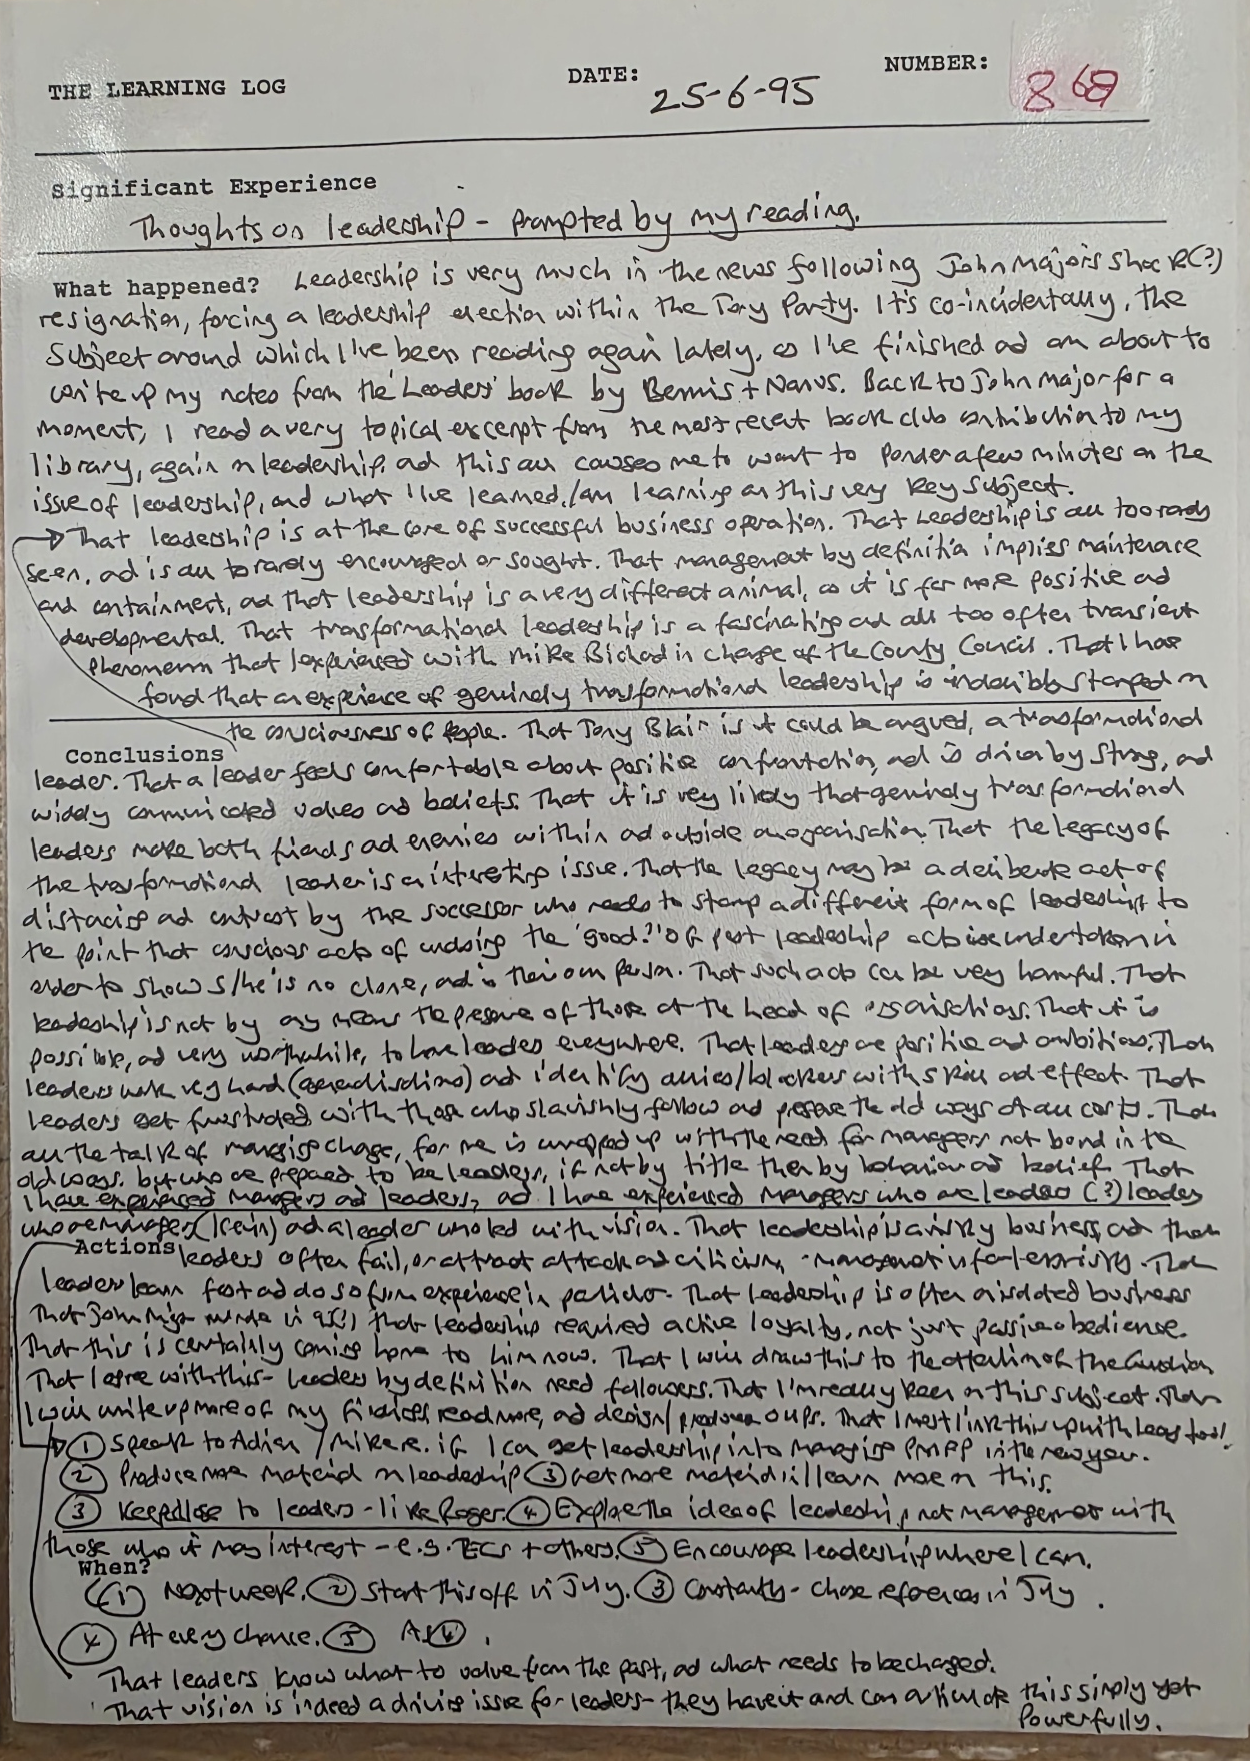 THE LEARNING LOG DATE: 25-6-95 NUMBER: 868
Significant Experience
Thoughts on leadership - prompted by my reading.
What happened? Leadership is very much in the news following John Major's shock(?)
resignation, forcing a leadership election within the Tory Party. It's co-incidentally, the
subject around which I've been reading again lately, as I've finished ad am about to
write up my notes from the 'Leaders' book by Bennis + Nanus. Back to John Major for a
moment, I read a very topical excerpt from the most recent book club contribution to my
library, again on leadership, ad this all causes me to want to ponder a few minutes on the
issue of leadership, and what I've learned/am learning on this very key subject.
→ That leadership is at the core of successful business operation. That Leadership is all too rarely
seen, ad is all to rarely encouraged or sought. That management by definition implies maintenance
and containment, ad that leadership is a very different animal, as it is far more positive ad
developmental. That transformational leadership is a fascinating ad all too often transient
phenomenon that I experienced with Mike Bichard in charge of the County Council. That I have
found that an experience of genuinely transformational leadership is indelibly stamped on
the consciousness of people. That Tony Blair is it could be argued, a transformational
Conclusions
leader. That a leader feels comfortable about positive confrontation, ad is driven by strong, ad
widely communicated values ad beliefs. That it is very likely that genuinely transformational
leaders make both friends ad enemies within ad outside an organisation. That the legacy of
the transformational leader is an interesting issue. That the legacy may be a deliberate act of
distancing ad contrast by the successor who needs to stamp a different form of leadership to
the point that conscious acts of undoing the 'good?' of past leadership acts undertaken in
order to show s/he is no clone, ad is their own person. That such acts can be very harmful. That
leadership is not by any means the preserve of those at the head of organisations. That it is
possible, ad very worthwhile, to have leaders everywhere. That leaders are positive ad ambitious. That
leaders work very hard ad identify allies/blockers with skill ad effect. That
leaders get frustrated with those who slavishly follow ad preserve the old ways at all costs. That
all the talk of managing change, for me is wrapped up with the need for managers not bond in the
old ways, but who are prepared to be leaders, if not by title then by behaviour ad belief. That
I have experienced managers ad leaders, ad I have experienced managers who are leaders (?) leaders
who are managers ad a leader who led with vision. That leadership is a risky business, ad that
Actions leaders often fail, or attract attack ad criticism, - management is far less risky. That
leaders learn fast ad do so from experience in particular. That leadership is often an isolated business
That John Major wrote in that leadership required active loyalty, not just passive obedience.
That this is certainly coming home to him now. That I will draw this to the attention of the Guardian
That I agree with this - leaders by definition need followers. That I'm really keen on this subject. That
I will write up more of my findings, read more, ad design/produce OUPs. That I must link this up with too!
→ ① Speak to Adrian / Mike R. if I can get leadership into managing in the new year.
② Produce more material on leadership ③ Get more material/learn more on this.
③ Keep close to leaders - like Roger. ④ Explore the idea of leadership, not management with
those who it may interest - e.g. TECs + others. ⑤ Encourage leadership where I can.
When?
① Next week. ② Start this off in July. ③ Constantly - chase references in July.
④ At every chance. ⑤ As ④.
That leaders know what to value from the past, ad what needs to be changed.
That vision is indeed a driving issue for leaders - they have it and can articulate this simply yet
powerfully.